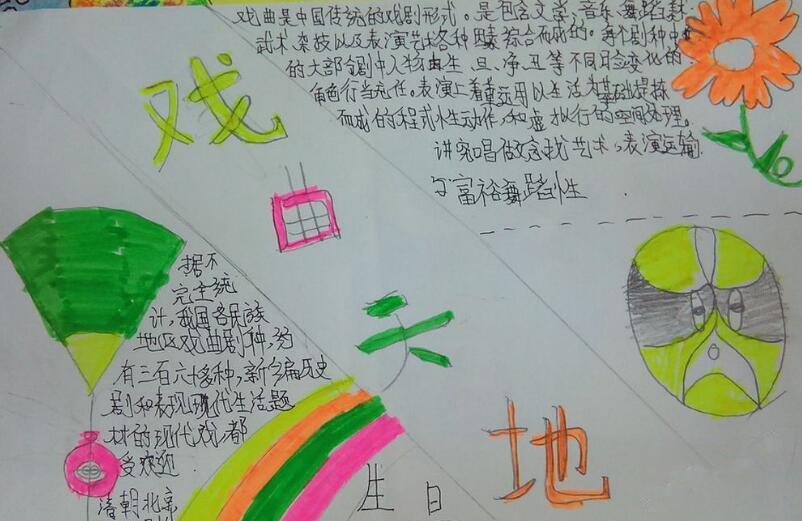 戏曲是中国传统的戏剧形式。是包含文学、音乐、舞蹈、
武术、杂技以及表演艺术各种因素综合而成的。各个剧种中
的大部剧中人物由生、旦、净、丑等不同脸变化的
角色行当充任。表演上着重运用以生活为基础提炼
而成的程式性动作,和虚拟行的空间处理。
讲究唱做念找艺术,表演运输
富裕舞蹈性
戏
曲
天
地
据不
完全统
计,我国各民族
地区戏曲剧种,约
有三百六十多种,新编历史
剧和表现现代生活题
材的现代戏,都
受欢迎
清朝北京
生 日